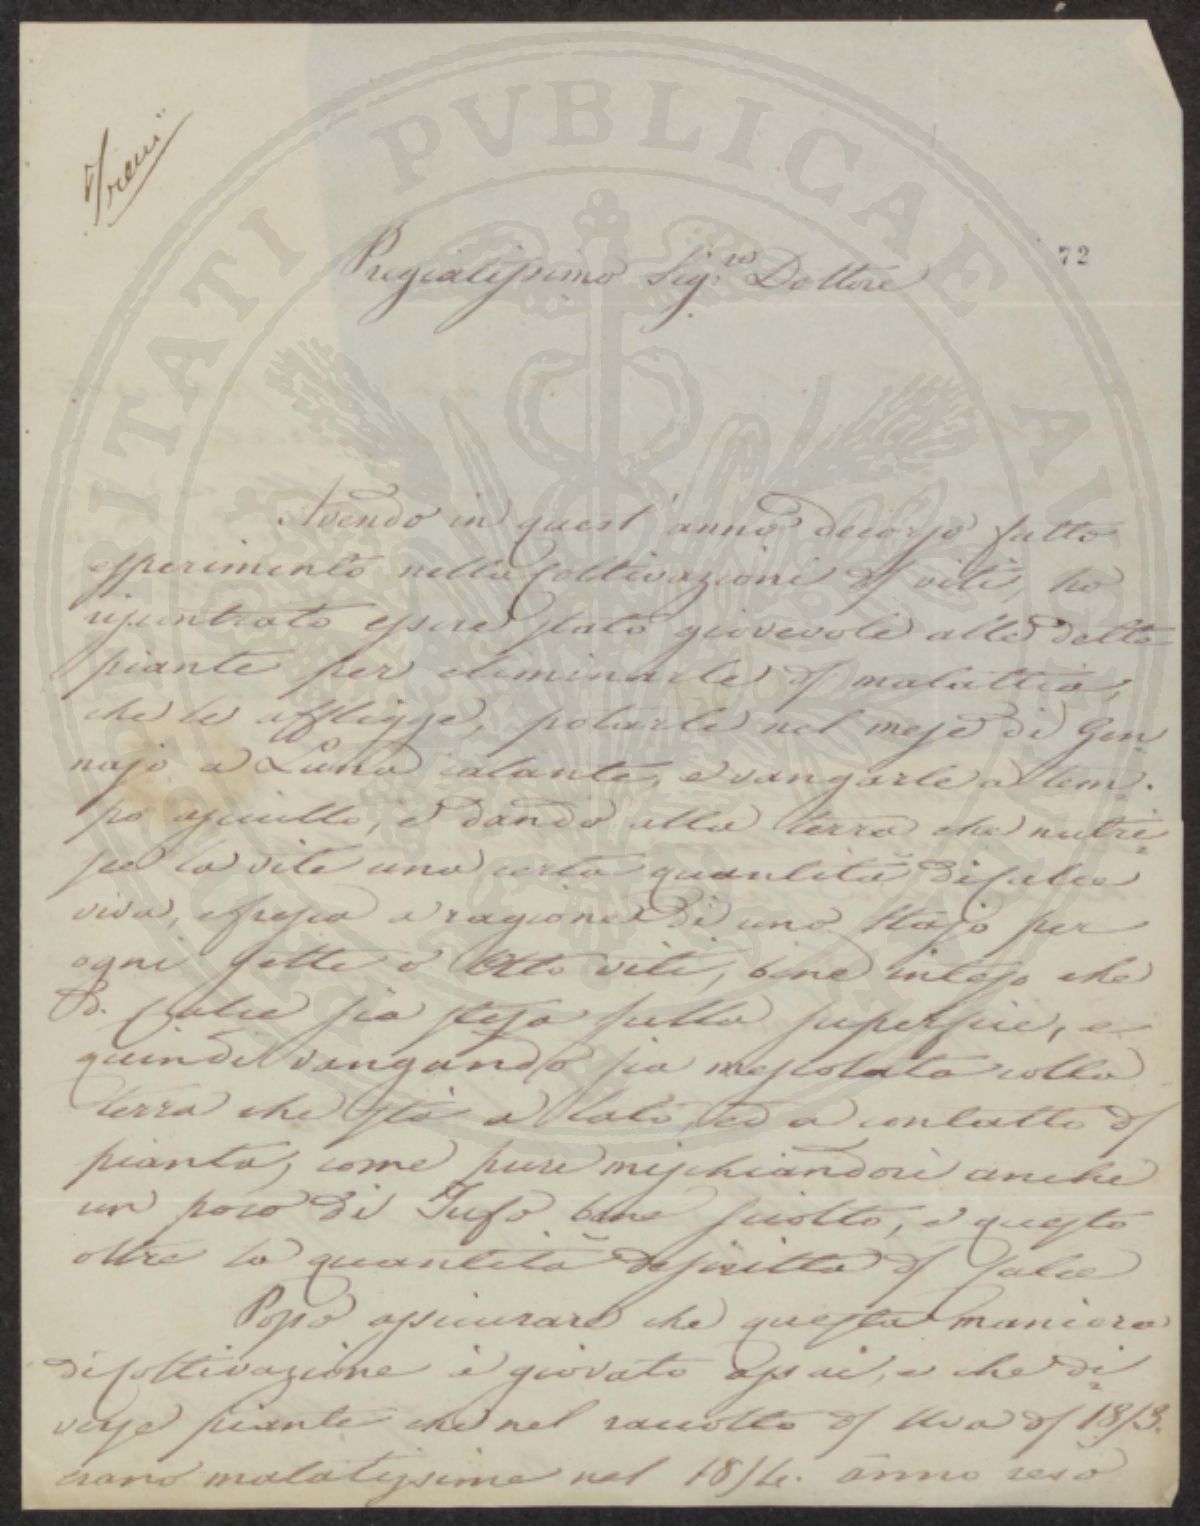 Treni
72
Pregiatissimo Sig.re Dottore
Avendo in quest'anno decorso fatto
esperimento nella Coltivazioni di viti, ho
riscontrato essere stato giovevole alle dette
piante per eliminarle di malattia,
che le affligge, potarle nel mese di Gen
najo a Luna calante, e vangarle a tem-
po asciutto, e dando alla terra che nutri=
sce la vite una certa quantità di calce
viva, e fresca a ragione di uno Stajo per
ogni Sette o Otto viti, bene inteso che
d. Calce sia stesa sulla superficie, e
quindi vangando sia mescolata colla
terra che stà a lato, ed a contatto di
pianta, come pure mischiandovi anche
un poco di Tufo bene sciolto, e questo
oltre la quantità descritta di Calce
Posso assicurare che questa maniera
di Coltivazione è giovato assai, e che di=
verse piante che nel raccolto di Uva di 1853.
erano malatissime nel 1854. anno reso
PVBLICAE